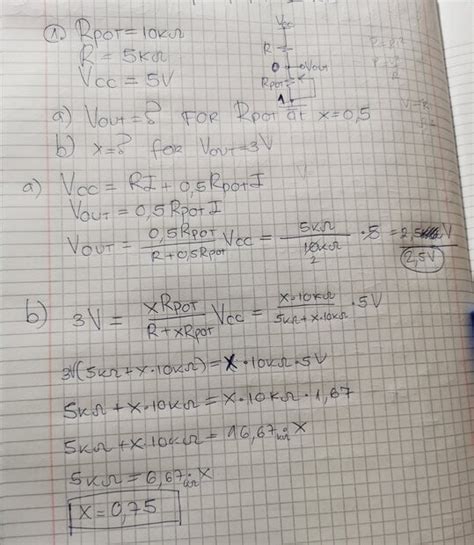 ① RPOT = 10kΩ
R = 5kΩ
VCC = 5V
VCC
R
0 VOUT
RPOT
1
a) VOUT = ? FOR RPOT at x = 0,5
b) x = ? for VOUT = 3V
a) VCC = RI + 0,5RPOT I
VOUT = 0,5RPOT I
VOUT = 0,5RPOT / (R + 0,5RPOT) VCC = 5kΩ / 10kΩ · 5 = 2,5 V
2
2,5V
b) 3V = xRPOT / (R + xRPOT) VCC = x·10kΩ / (5kΩ + x·10kΩ) · 5V
3V(5kΩ + x·10kΩ) = x·10kΩ·5V
5kΩ + x·10kΩ = x·10kΩ·1,67
5kΩ + x·10kΩ = 16,67kΩ·x
5kΩ = 6,67kΩ·x
x = 0,75